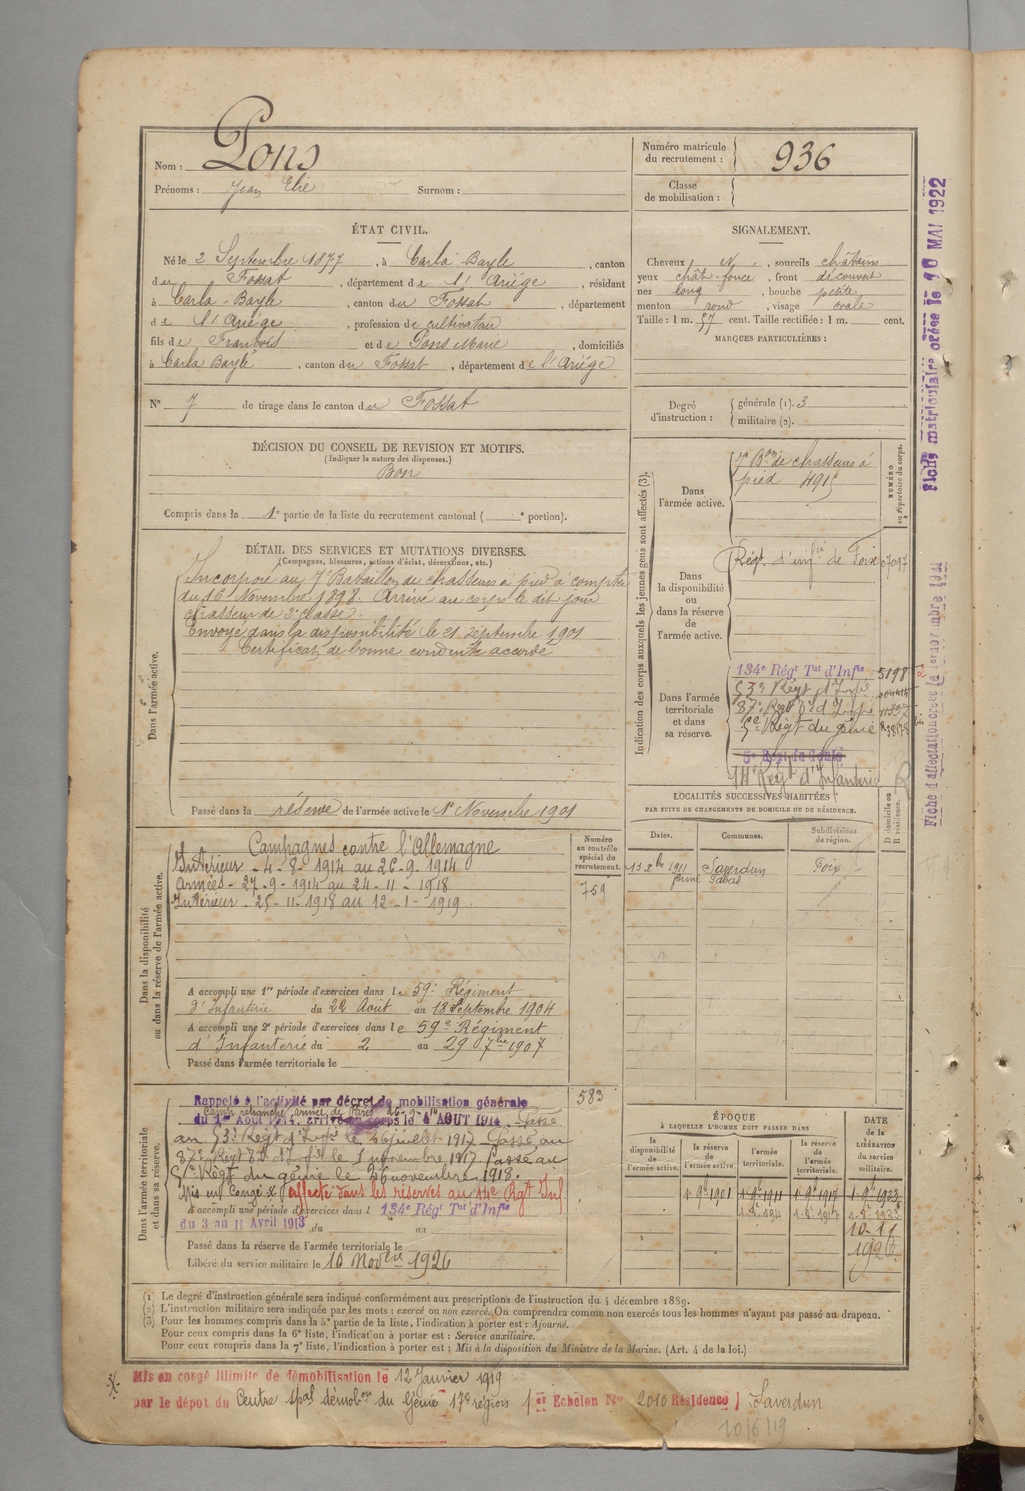 Nom : Pons
Prénoms : Jean Elie Surnom :
Numéro matricule du recrutement : 936
Classe de mobilisation :
ÉTAT CIVIL.
Né le 2 Septembre 1877, à Carla Bayle, canton
du Fossat, département de l'Ariége, résidant
à Carla-Bayle, canton du Fossat, département
de l'Ariége, profession de cultivateur
fils de François et de Pons Marie, domiciliés
à Carla Bayle, canton du Fossat, département de l'Ariége
N° 7 de tirage dans le canton du Fossat
SIGNALEMENT.
Cheveux N, sourcils châtains
yeux chât-foncé, front découvert
nez long, bouche petite
menton rond, visage ovale
Taille : 1 m. 57 cent. Taille rectifiée : 1 m. cent.
MARQUES PARTICULIÈRES :
Degré d'instruction : générale (1). 3
militaire (2).
DÉCISION DU CONSEIL DE REVISION ET MOTIFS.
(Indiquer la nature des dispenses.)
Bon
Compris dans la 1e partie de la liste du recrutement cantonal ( e portion).
DÉTAIL DES SERVICES ET MUTATIONS DIVERSES.
(Campagnes, blessures, actions d'éclat, décorations, etc.)
Dans l'armée active.
Incorporé au 7e Bataillon de chasseurs à pied à compter
du 16 Novembre 1898. Arrivé au corps le dit jour
chasseur de 2e classe.
Envoyé dans la disponibilité le 21 septembre 1901
Certificat de bonne conduite accordé
Passé dans la réserve de l'armée active le 1er Novembre 1901
Indication des corps auxquels les jeunes gens sont affectés (3).
NUMÉRO au répertoire du corps.
Dans l'armée active.
7e Bon de chasseurs à
pied 4915
Dans la disponibilité ou dans la réserve de l'armée active.
Régt. d'infrie de Foix 07097
Dans l'armée territoriale et dans sa réserve.
134e Régt Tal d'Infie 5198
53e Régt d'Infie
87e Régt Tal d'Infie
5e Régt du génie
5e Régt du Génie
14e Régt d'Infanterie
LOCALITÉS SUCCESSIVES HABITÉES
PAR SUITE DE CHANGEMENTS DE DOMICILE OU DE RÉSIDENCE.
Dates. Communes. Subdivisions de région. D domicile ou R résidence.
13 Xbre 1911 Saverdun Foix
ferme
Dans la disponibilité ou dans la réserve de l'armée active.
Numéro au contrôle spécial du recrutement.
759
Campagnes contre l'Allemagne
Intérieur - 4-8-1914 au 26-9-1914
Armées - 27-9-1914 au 24-11-1918
Intérieur - 25-11-1918 au 12-1-1919
A accompli une 1re période d'exercices dans le 59e Régiment
d'Infanterie du 22 Août au 18 Septembre 1904
A accompli une 2e période d'exercices dans le 59e Régiment
d'Infanterie du 2 au 29 7bre 1907
Passé dans l'armée territoriale le
Dans l'armée territoriale et dans sa réserve.
583
Rappelé à l'activité par décret de mobilisation générale
Camp retranché armée de Paris 26-9-14
du 1er Août 1914. arrivé au corps le 4 AOUT 1914. Passé
au 53e Régt d'Infie le 26 juillet 1917 Passé au
87e Régt Tal d'Infie le 1 novembre 1917 Passé au
5e Régt du génie le 26 novembre 1918.
Mis en Congé X affecté dans les réserves au 14e Rgt Inf
A accompli une période d'exercices dans l 134e Régt Tal d'Infie
du 3 au 11 Avril 1913 du au
Passé dans la réserve de l'armée territoriale le
Libéré du service militaire le 10 Novbre 1926
ÉPOQUE
À LAQUELLE L'HOMME DOIT PASSER DANS
la disponibilité de l'armée active.
la réserve de l'armée active.
l'armée territoriale.
la réserve de l'armée territoriale.
DATE de la LIBÉRATION du service militaire.
1 9bre 1901 1 9bre 1911 1 9bre 1917 1 9bre 1923
10-11
1926
(1) Le degré d'instruction générale sera indiqué conformément aux prescriptions de l'instruction du 4 décembre 1889.
(2) L'instruction militaire sera indiquée par les mots : exercé ou non exercé. On comprendra comme non exercés tous les hommes n'ayant pas passé au drapeau.
(3) Pour les hommes compris dans la 5e partie de la liste, l'indication à porter est : Ajourné.
Pour ceux compris dans la 6e liste, l'indication à porter est : Service auxiliaire.
Pour ceux compris dans la 7e liste, l'indication à porter est : Mis à la disposition du Ministre de la Marine. (Art. 4 de la loi.)
-X- Mis en congé illimité de démobilisation le 12 Janvier 1919
par le dépot du Centre spal démobon du Génie 17e région 1er Echelon N° 2010 Résidence Saverdun
20/6/19
Fiche matriculaire créée le 10 MAI 1922
Fiche d'affectation créée le 1er novembre 1921